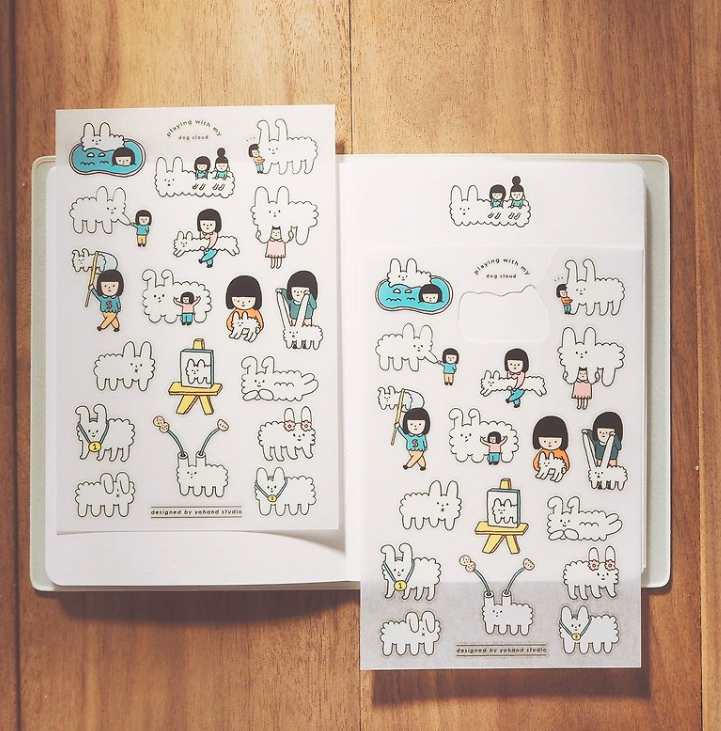 playing with my
dog cloud
designed by yohand studio
playing with my
dog cloud
designed by yohand studio